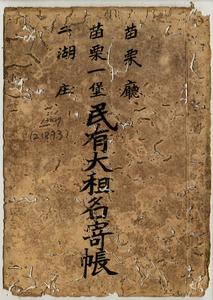 苗栗廳
苗栗一堡
二湖庄
民有大租名寄帳
(21893)